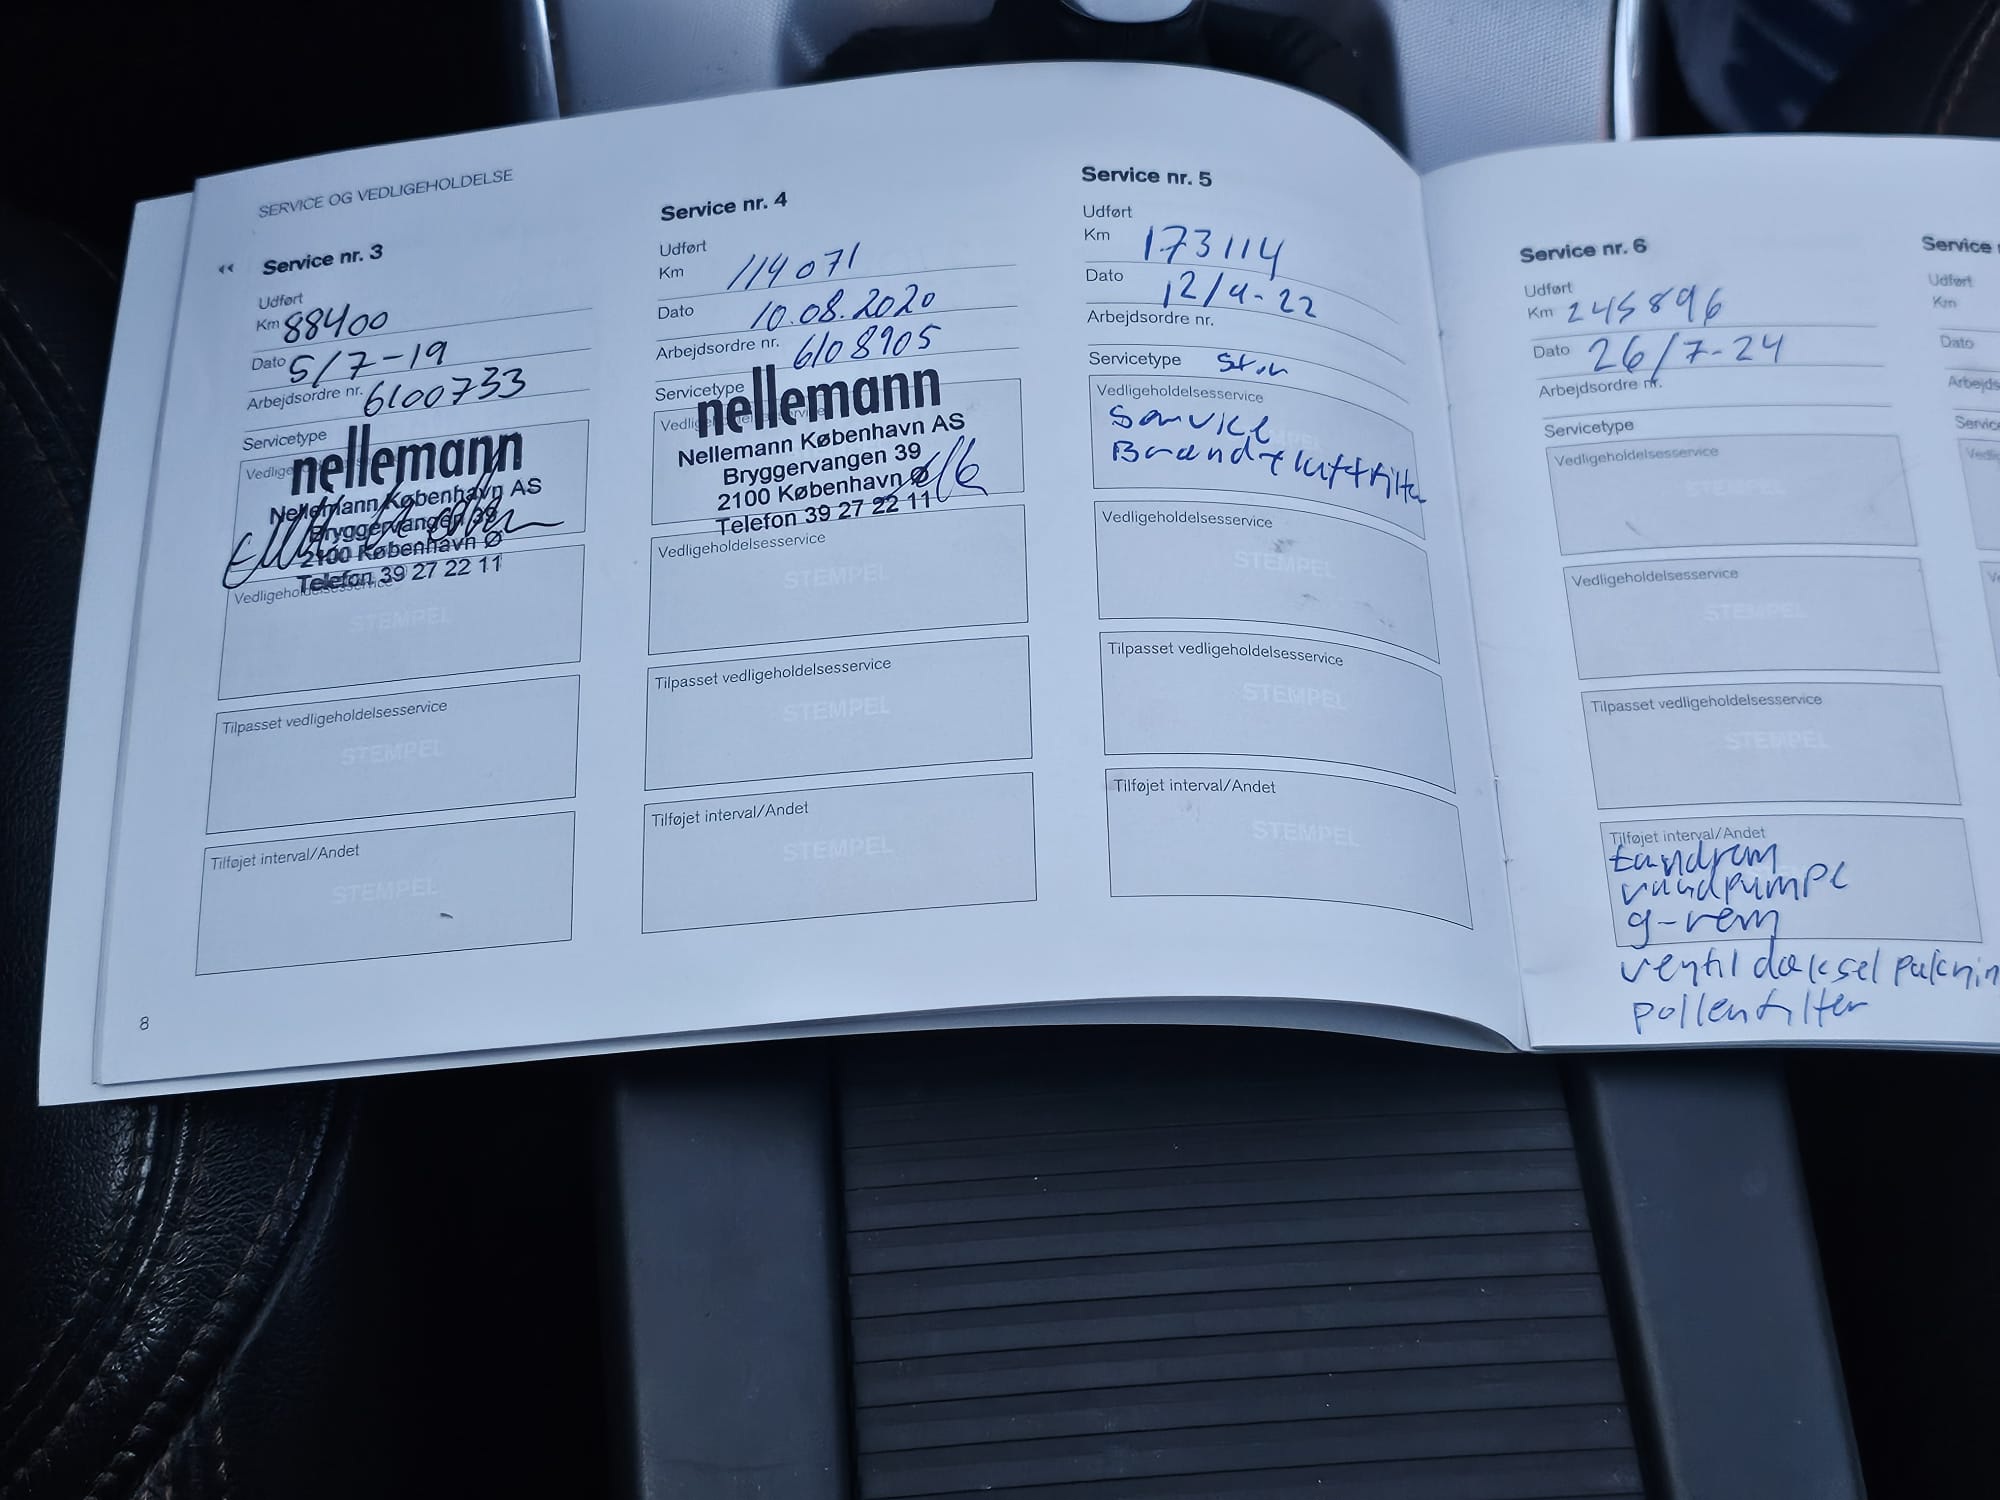 SERVICE OG VEDLIGEHOLDELSE
Service nr. 3
Udført
Km 88400
Dato 5/7-19
Arbejdsordre nr. 6100733
Servicetype
nellemann
Nellemann København AS
Bryggervangen 39
2100 København Ø
Telefon 39 27 22 11
Vedligeholdelsesservice
STEMPEL
Tilpasset vedligeholdelsesservice
STEMPEL
Tilføjet interval/Andet
STEMPEL
8
Service nr. 4
Udført
Km 114071
Dato 10.08.2020
Arbejdsordre nr. 6108905
Servicetype
nellemann
Nellemann København AS
Bryggervangen 39
2100 København Ø
Telefon 39 27 22 11
Vedligeholdelsesservice
STEMPEL
Tilpasset vedligeholdelsesservice
STEMPEL
Tilføjet interval/Andet
STEMPEL
Service nr. 5
Udført
Km 173114
Dato 12/4-22
Arbejdsordre nr.
Servicetype
Vedligeholdelsesservice
Service
Brænd + luftfilter
Vedligeholdelsesservice
STEMPEL
Tilpasset vedligeholdelsesservice
STEMPEL
Tilføjet interval/Andet
STEMPEL
Service nr. 6
Udført
Km 245896
Dato 26/7-24
Arbejdsordre nr.
Servicetype
Vedligeholdelsesservice
STEMPEL
Vedligeholdelsesservice
STEMPEL
Tilpasset vedligeholdelsesservice
STEMPEL
Tilføjet interval/Andet
tandrem
vandpumpe
g-rem
ventildæksel paknin
pollenfilter
Service
Udført
Km
Dato
Arbejds
Servic